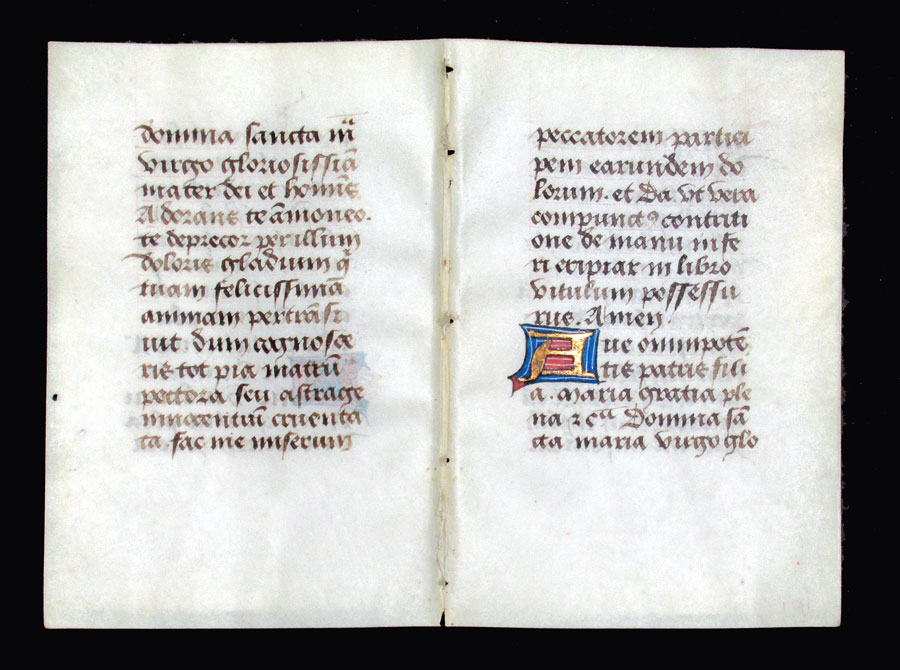 domina sancta mᵃ
virgo gloriosissiā
mater dei et hominis
Adorans te āmoneo.
te deprecor per illum
doloris gladium q̄
tuam felicissimā
animam pertrāsi
uit. dum cognosce
ris tot pia matrū
pectora seu astrage
innocentiū cruenta
ta fac me miserum
peccatorem partici
pem earundem do
lorum. et Da vt vera
compunctꝯ contriti
one de manu infe
ri eripiar in libro
vitulum possessu
rus. Amen.
Aue omnipotē
tis patris fili
a. maria gratia ple
na ⁊ cᵃ Domina sā
cta maria virgo glo